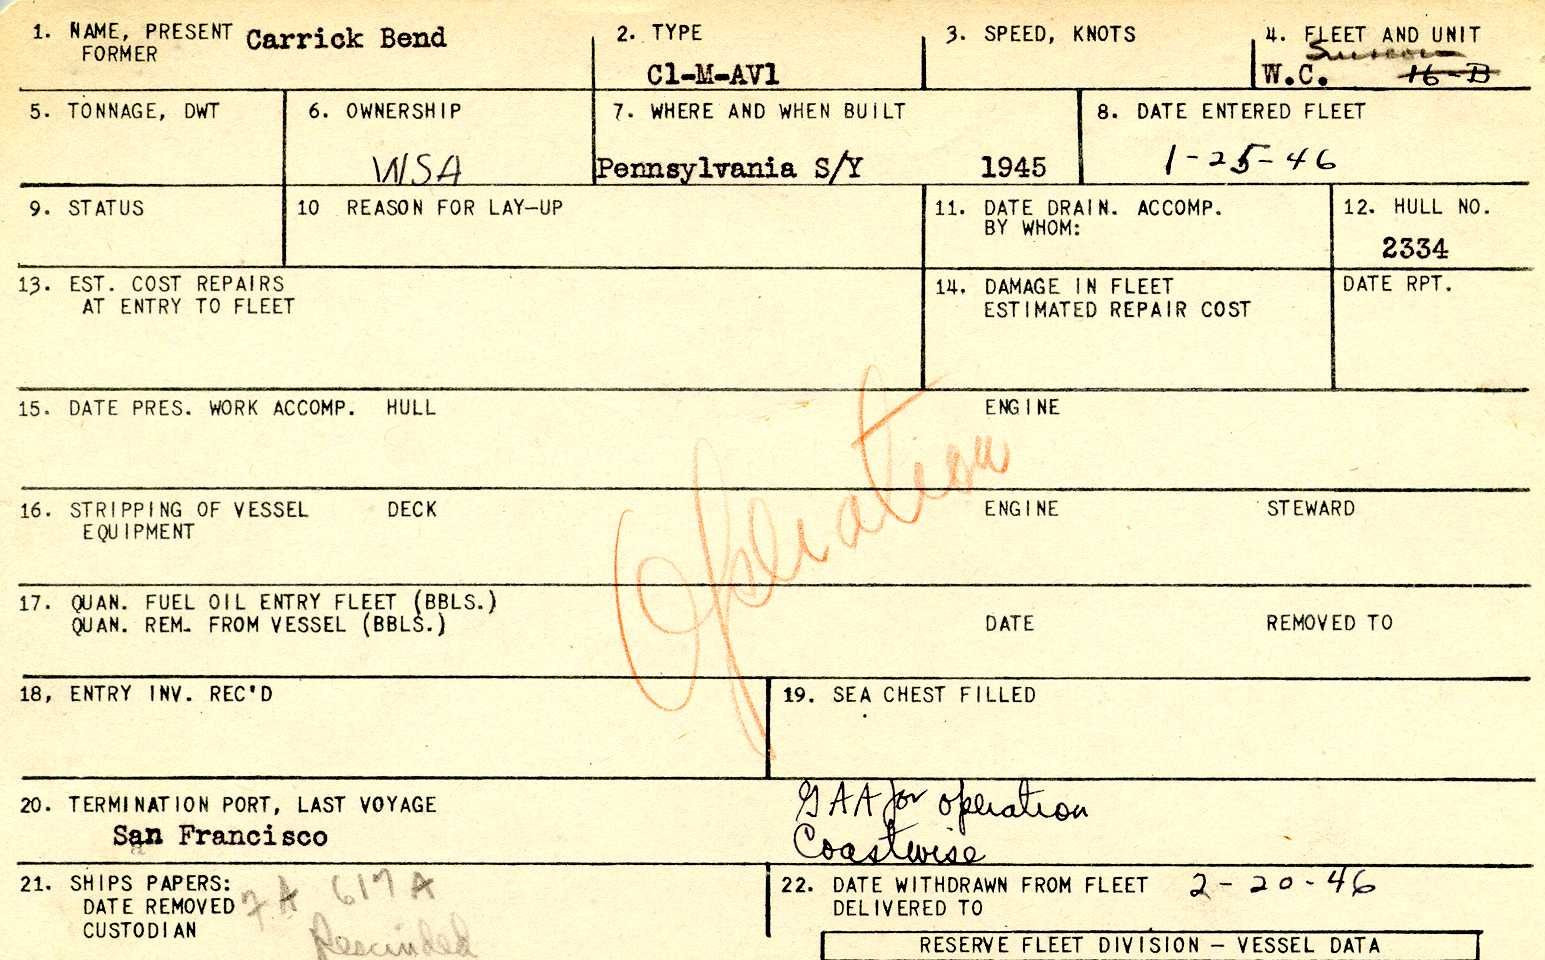 1. NAME, PRESENT Carrick Bend
FORMER
2. TYPE
C1-M-AV1
3. SPEED, KNOTS
4. FLEET AND UNIT
Suisun
W.C. 16-B
5. TONNAGE, DWT
6. OWNERSHIP
WSA
7. WHERE AND WHEN BUILT
Pennsylvania S/Y 1945
8. DATE ENTERED FLEET
1-25-46
9. STATUS
10 REASON FOR LAY-UP
11. DATE DRAIN. ACCOMP.
BY WHOM:
12. HULL NO.
2334
13. EST. COST REPAIRS
AT ENTRY TO FLEET
14. DAMAGE IN FLEET
ESTIMATED REPAIR COST
DATE RPT.
15. DATE PRES. WORK ACCOMP. HULL ENGINE
Operation
16. STRIPPING OF VESSEL DECK ENGINE STEWARD
EQUIPMENT
17. QUAN. FUEL OIL ENTRY FLEET (BBLS.)
QUAN. REM. FROM VESSEL (BBLS.) DATE REMOVED TO
18, ENTRY INV. REC'D
19. SEA CHEST FILLED
20. TERMINATION PORT, LAST VOYAGE
San Francisco
GAA for operation
Coastwise
21. SHIPS PAPERS:
DATE REMOVED 7A 617A
CUSTODIAN
Rescinded
22. DATE WITHDRAWN FROM FLEET 2-20-46
DELIVERED TO
RESERVE FLEET DIVISION – VESSEL DATA